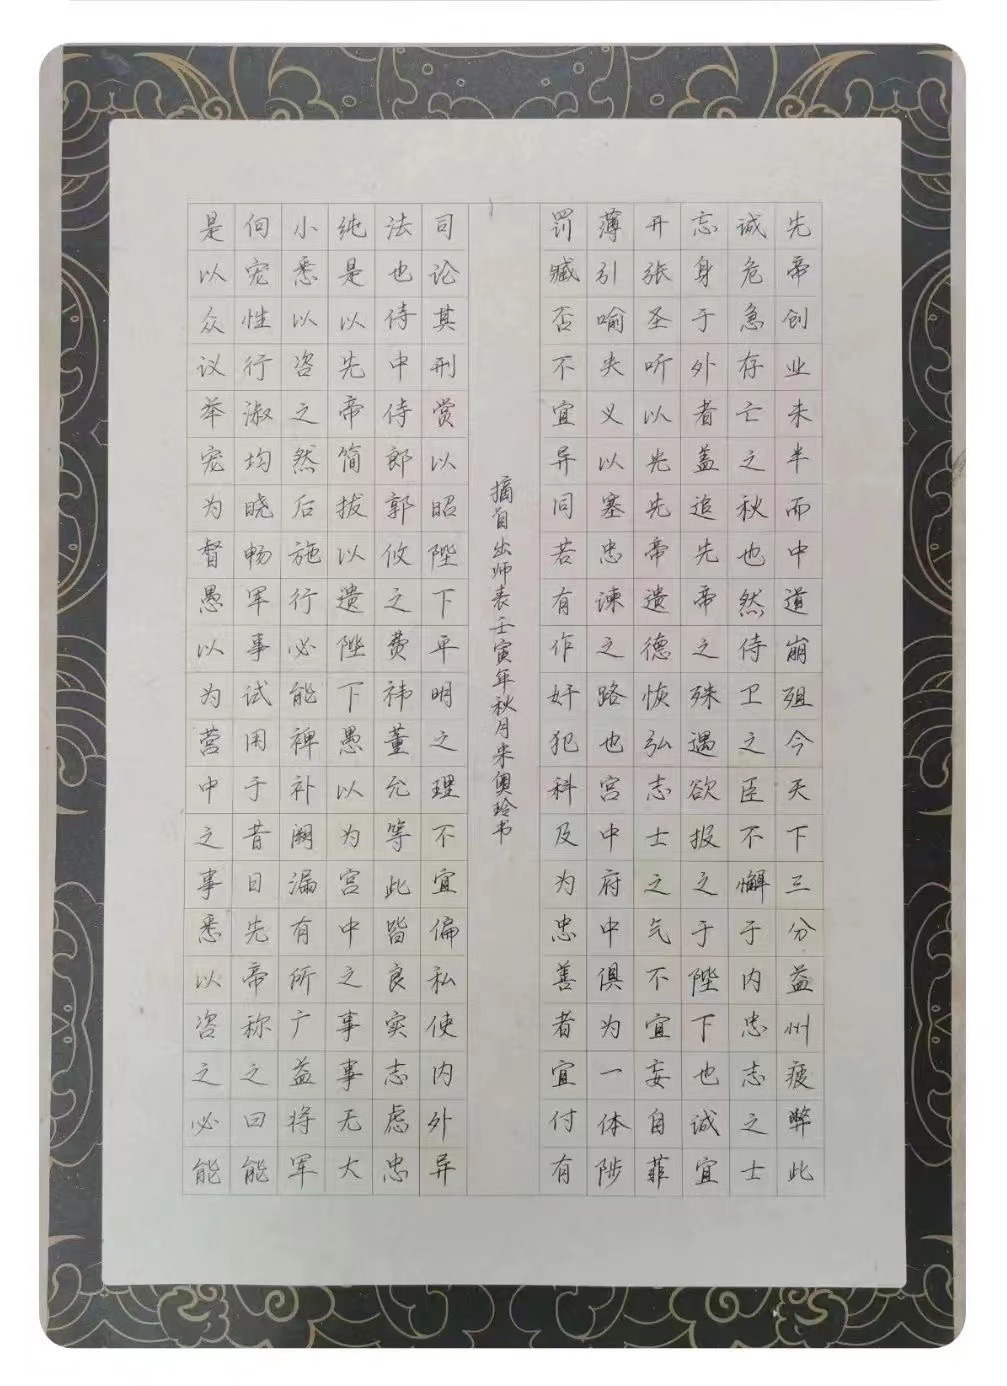 先帝创业未半而中道崩殂今天下三分益州疲弊此
诚危急存亡之秋也然侍卫之臣不懈于内忠志之士
忘身于外者盖追先帝之殊遇欲报之于陛下也诚宜
开张圣听以光先帝遗德恢弘志士之气不宜妄自菲
薄引喻失义以塞忠谏之路也宫中府中俱为一体陟
罚臧否不宜异同若有作奸犯科及为忠善者宜付有
摘自出师表壬寅年秋月宋奥玲书
司论其刑赏以昭陛下平明之理不宜偏私使内外异
法也侍中侍郎郭攸之费祎董允等此皆良实志虑忠
纯是以先帝简拔以遗陛下愚以为宫中之事事无大
小悉以咨之然后施行必能裨补阙漏有所广益将军
向宠性行淑均晓畅军事试用于昔日先帝称之曰能
是以众议举宠为督愚以为营中之事悉以咨之必能